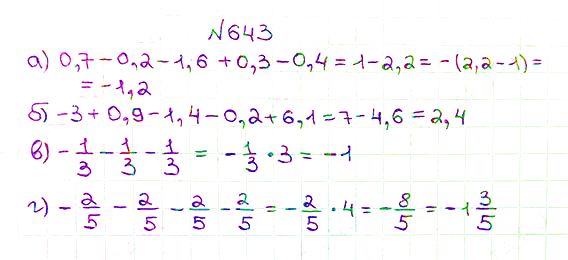 №643
а) 0,7 - 0,2 - 1,6 + 0,3 - 0,4 = 1 - 2,2 = -(2,2 - 1) =
= -1,2
б) -3 + 0,9 - 1,4 - 0,2 + 6,1 = 7 - 4,6 = 2,4
в) - 1/3 - 1/3 - 1/3 = - 1/3 · 3 = -1
г) - 2/5 - 2/5 - 2/5 - 2/5 = - 2/5 · 4 = - 8/5 = -1 3/5